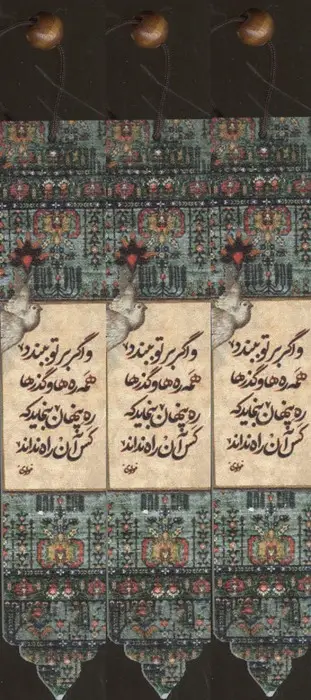 و اگر بر تو ببندد
همه ره ها و گذرها
ره پنهان بنماید که
کس آن راه نداند
مولوی
و اگر بر تو ببندد
همه ره ها و گذرها
ره پنهان بنماید که
کس آن راه نداند
مولوی
و اگر بر تو ببندد
همه ره ها و گذرها
ره پنهان بنماید که
کس آن راه نداند
مولوی